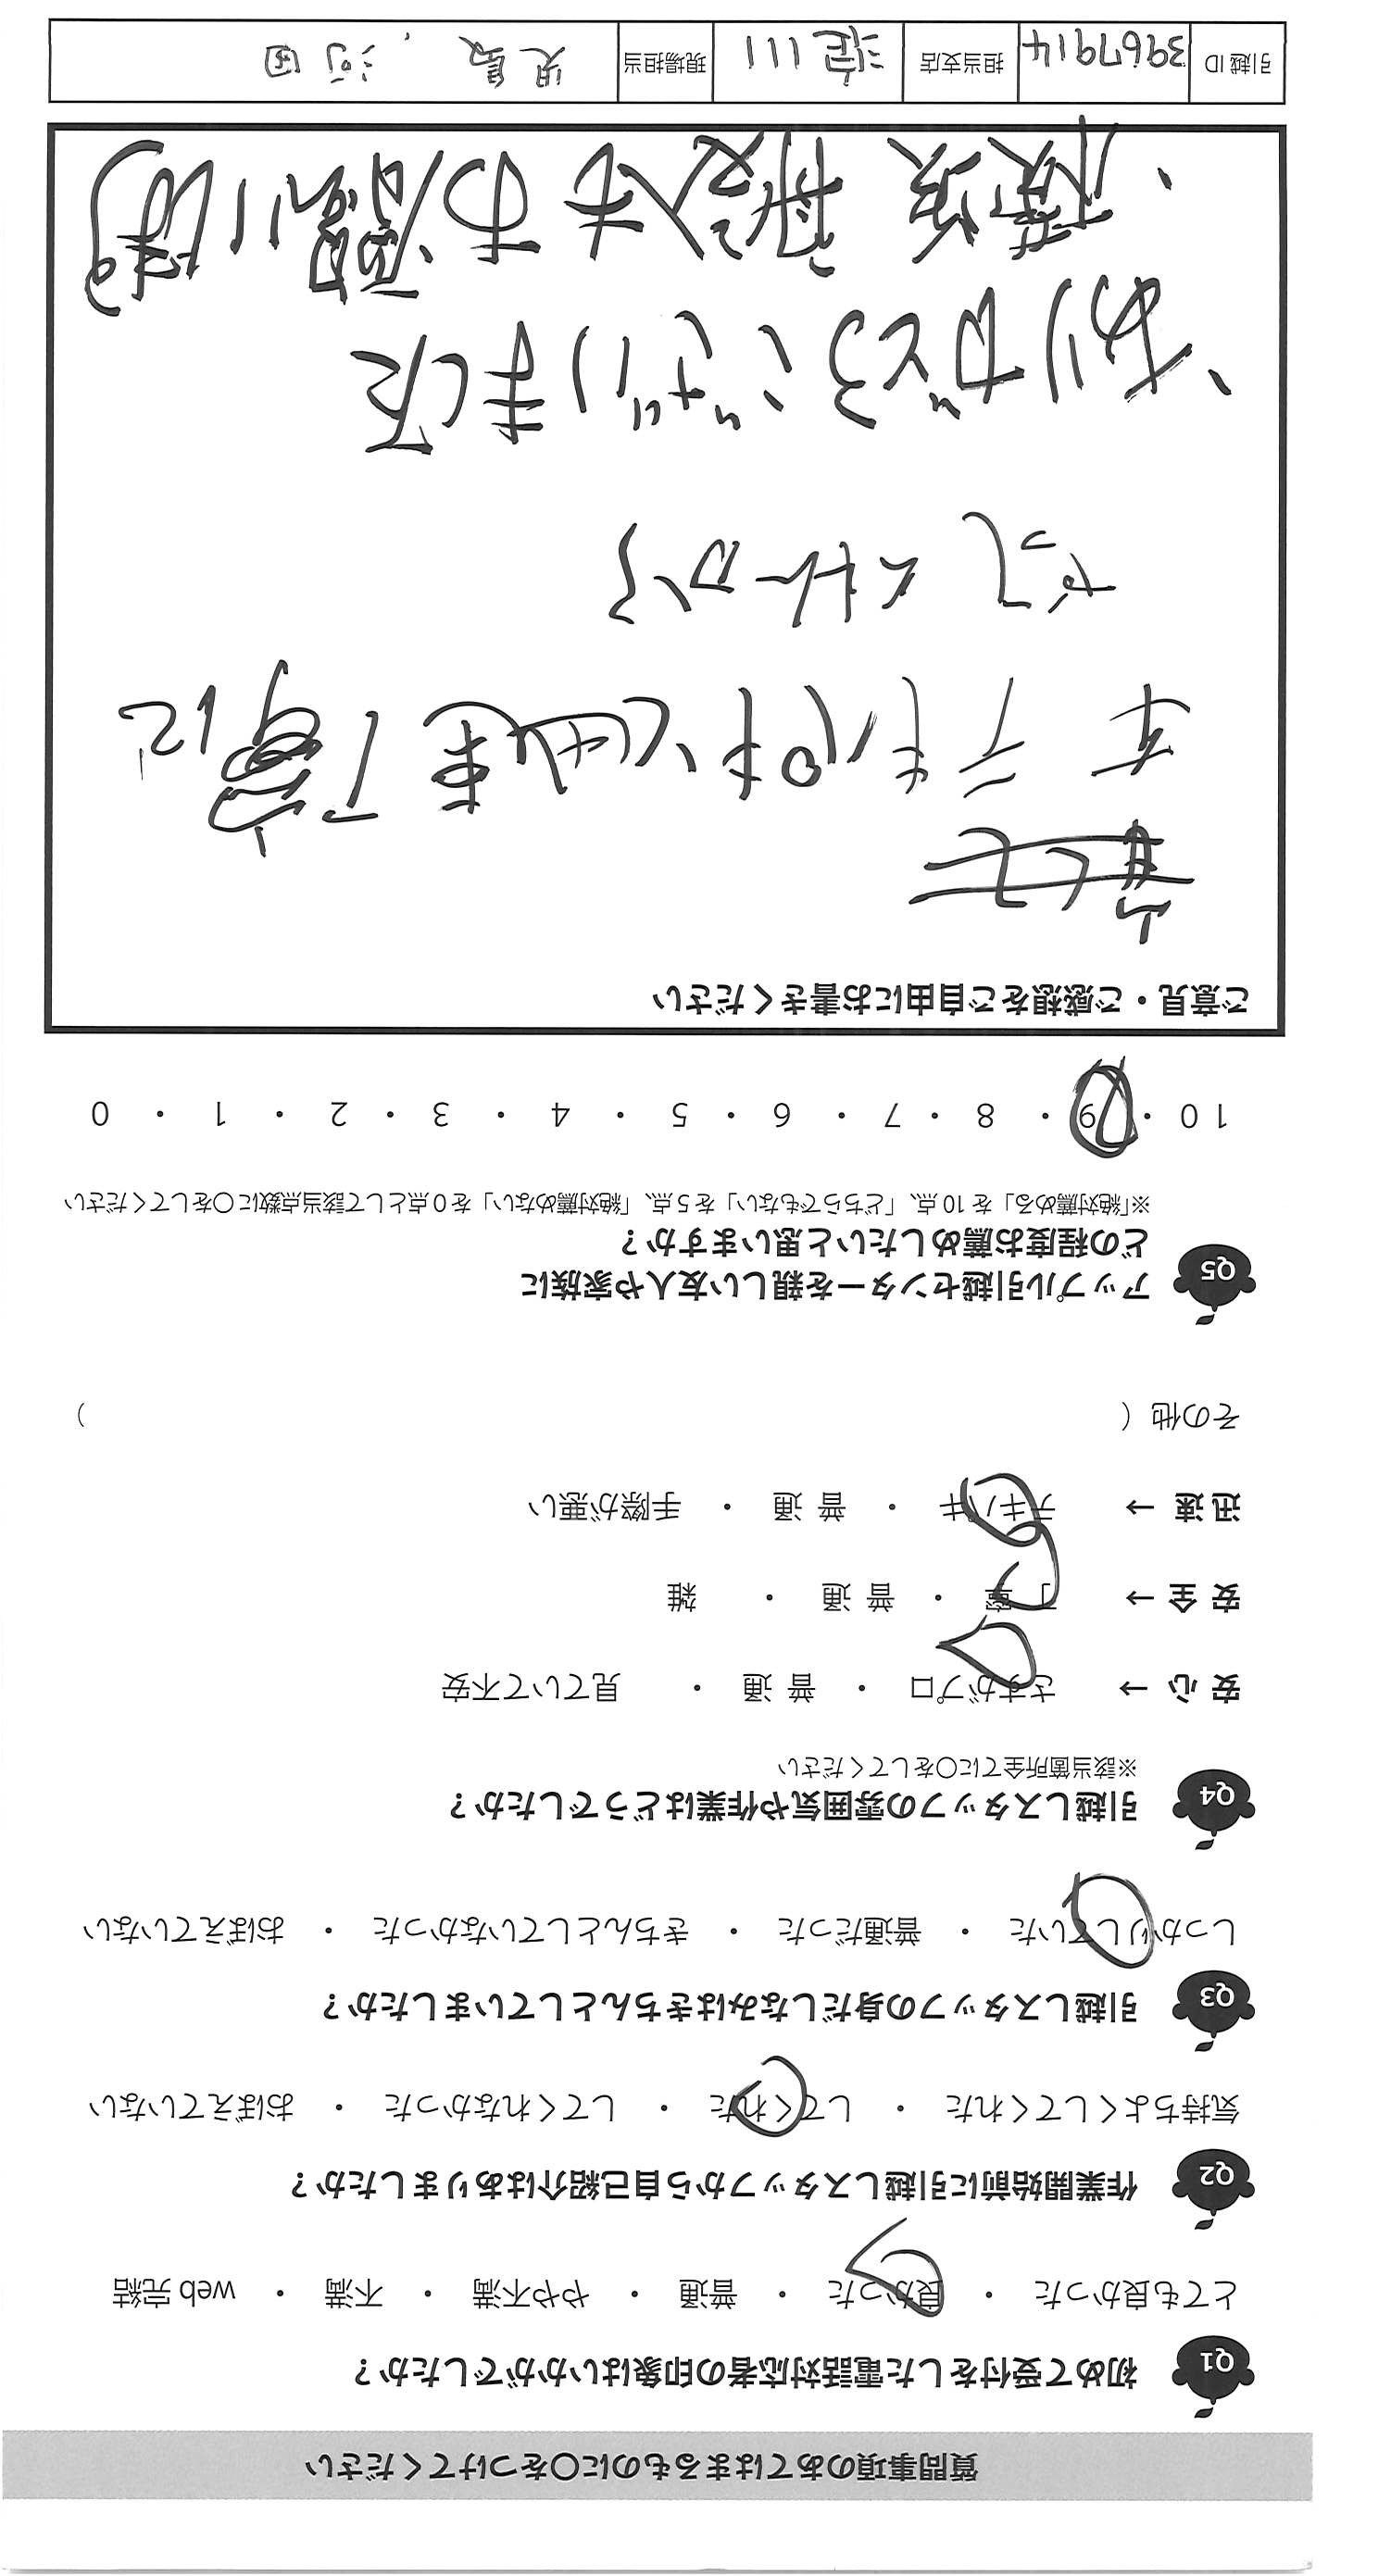 質問事項のあてはまるものに〇をつけてください
Q1 初めて受付をした電話対応者の印象はいかがでしたか？
とても良かった ・ 良かった ・ 普通 ・ やや不満 ・ 不満 ・ web 完結
Q2 作業開始前に引越しスタッフから自己紹介はありましたか？
気持ちよくしてくれた ・ してくれた ・ してくれなかった ・ おぼえていない
Q3 引越しスタッフの身だしなみはきちんとしていましたか？
しっかりしていた ・ 普通だった ・ きちんとしていなかった ・ おぼえていない
Q4 引越しスタッフの雰囲気や作業はどうでしたか？
※該当箇所全てに〇をしてください
安 心 → さすがプロ ・ 普 通 ・ 見ていて不安
安 全 → 丁 寧 ・ 普 通 ・ 雑
迅 速 → テキパキ ・ 普 通 ・ 手際が悪い
その他（ ）
Q5 アップル引越センターを親しい友人や家族に
どの程度お薦めしたいと思いますか？
※「絶対薦める」を 10 点、「どちらでもない」を 5 点、「絶対薦めない」を 0 点として該当点数に〇をしてください
10 ・ 9 ・ 8 ・ 7 ・ 6 ・ 5 ・ 4 ・ 3 ・ 2 ・ 1 ・ 0
ご意見・ご感想をご自由にお書きください
テキパキと 丁寧に
やって くれた
ありがとうございました
引越 ID 3967914 担当支店 淀川 現場担当 児島、河田